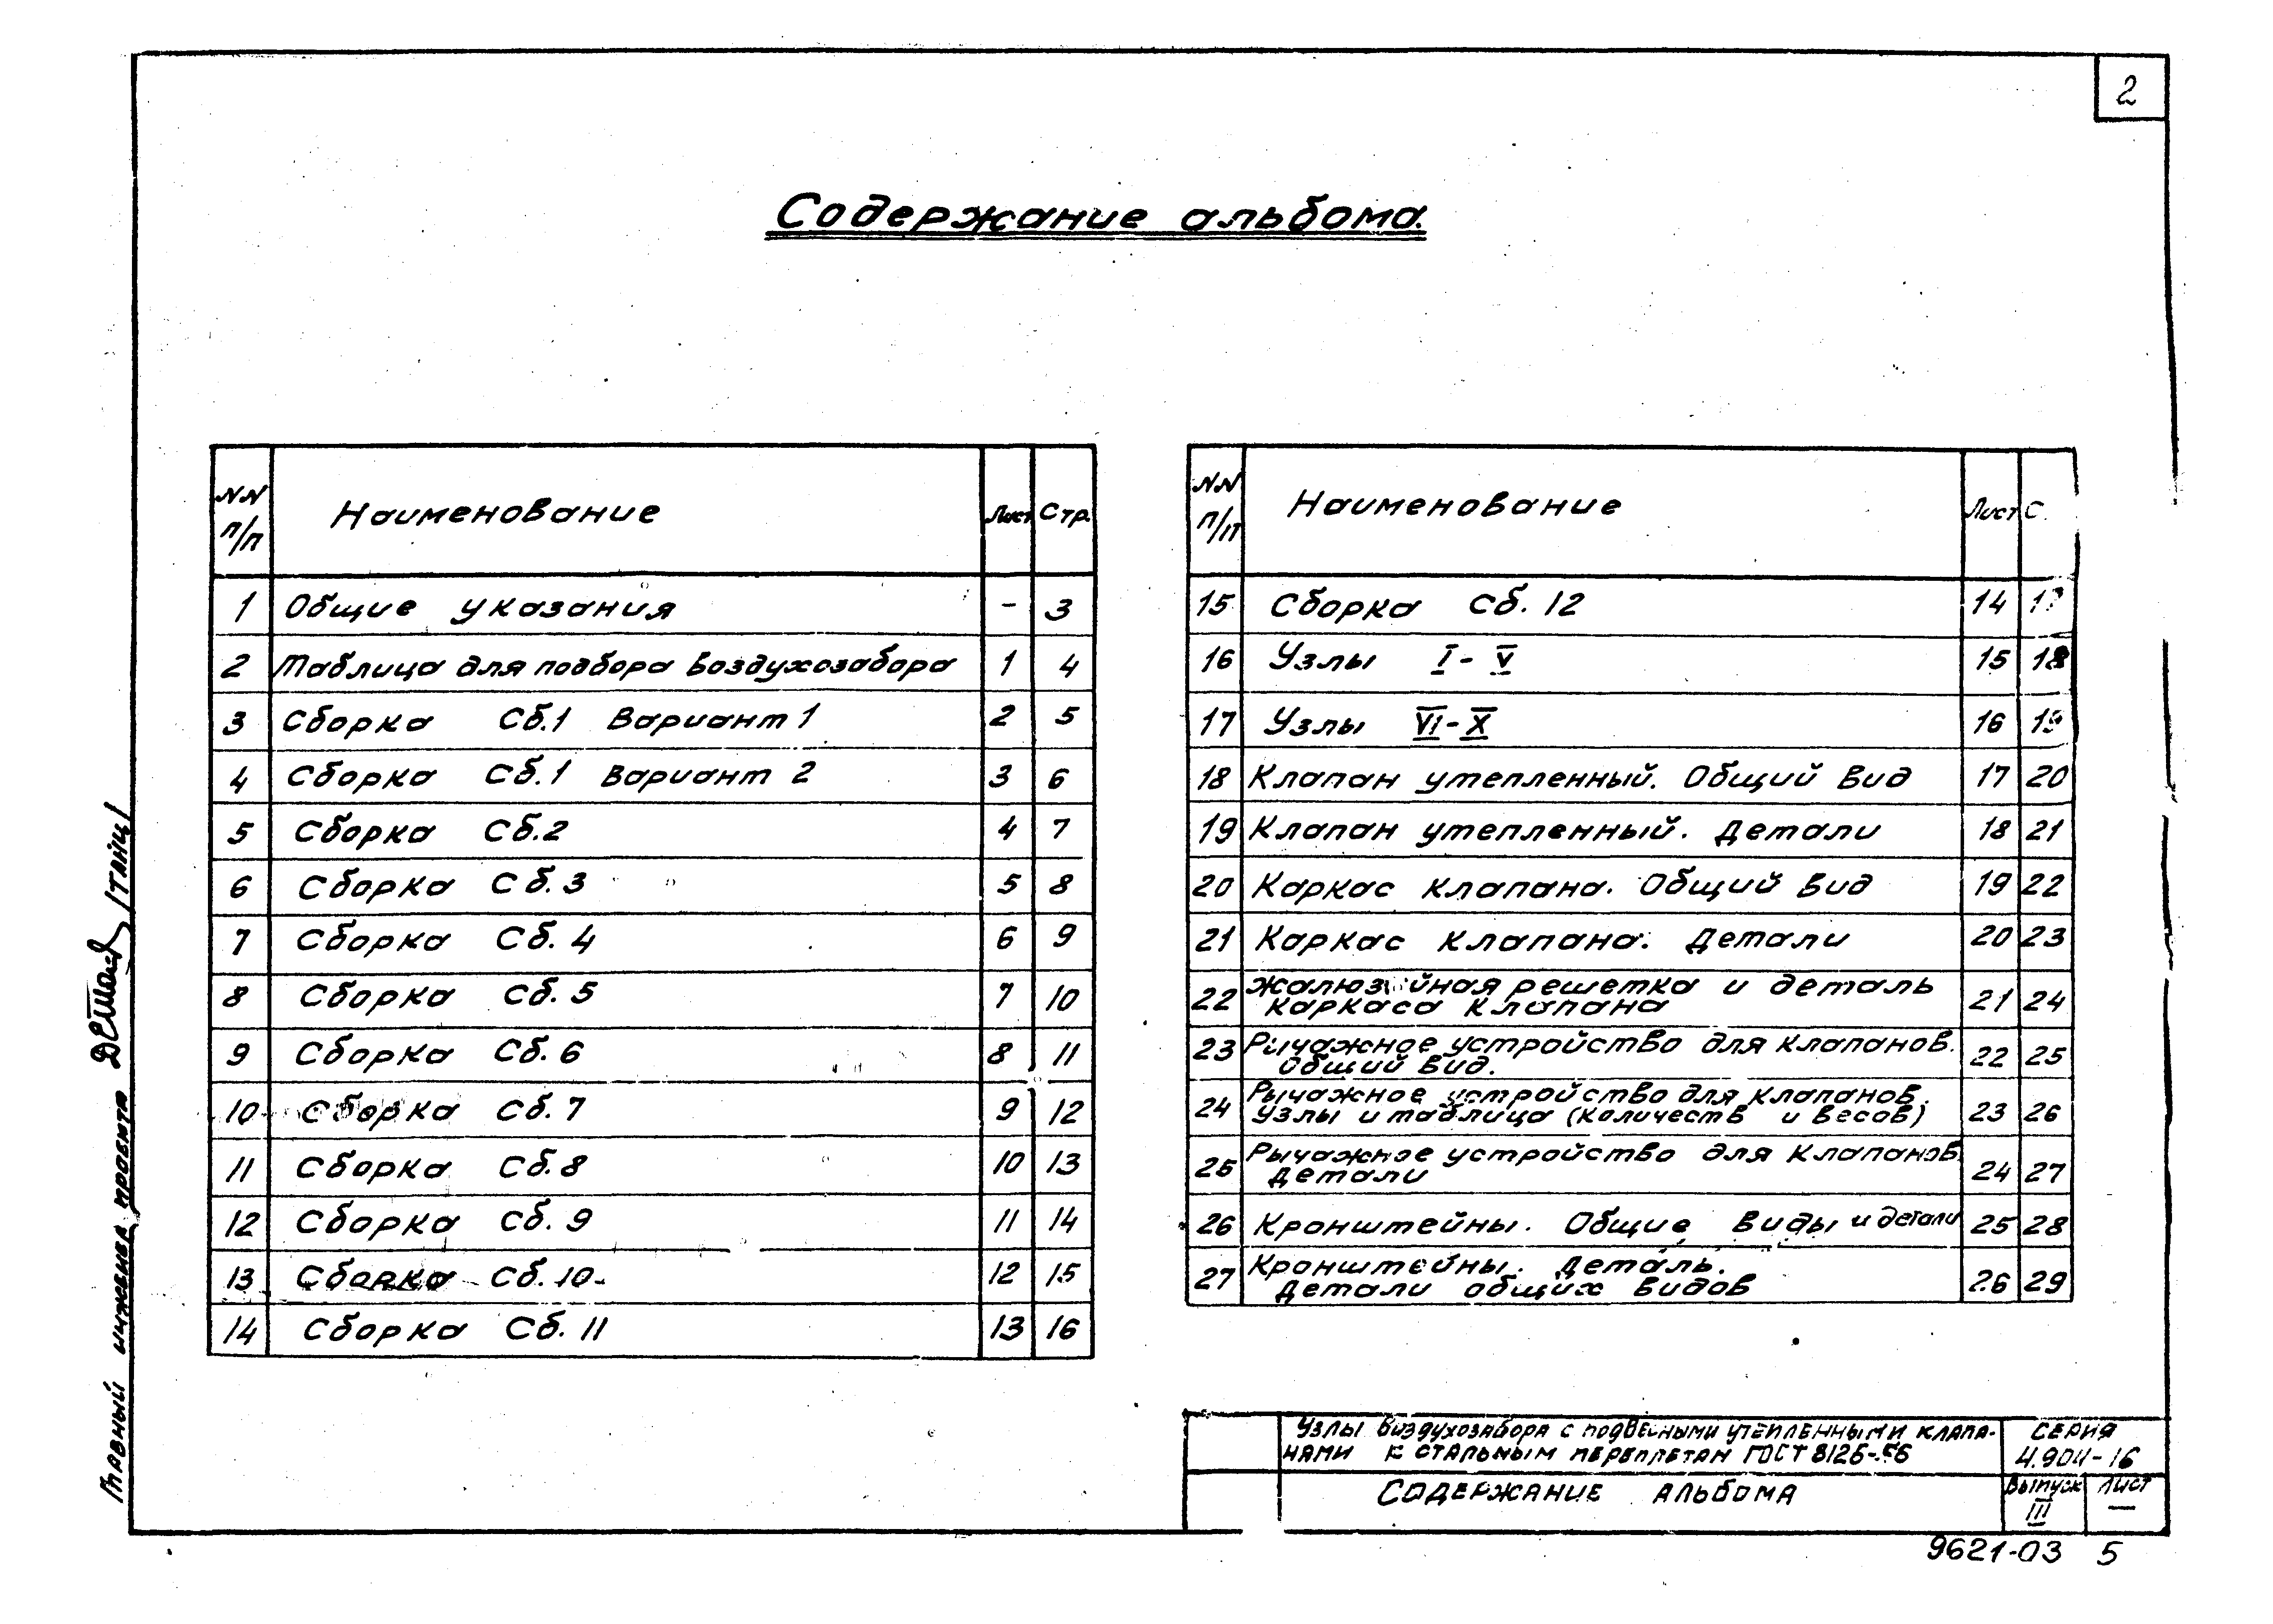 2
Содержание альбома.
NN п/п Наименование Лист Стр.
1 Общие указания - 3
2 Таблица для подбора воздухозабора 1 4
3 Сборка Сб.1 Вариант 1 2 5
4 Сборка Сб.1 Вариант 2 3 6
5 Сборка Сб.2 4 7
6 Сборка Сб.3 5 8
7 Сборка Сб.4 6 9
8 Сборка Сб.5 7 10
9 Сборка Сб.6 8 11
10 Сборка Сб.7 9 12
11 Сборка Сб.8 10 13
12 Сборка Сб.9 11 14
13 Сборка Сб.10 12 15
14 Сборка Сб.11 13 16
NN п/п Наименование Лист С.
15 Сборка Сб.12 14 17
16 Узлы I-V 15 18
17 Узлы VI-X 16 19
18 Клапан утепленный. Общий вид 17 20
19 Клапан утепленный. Детали 18 21
20 Каркас клапана. Общий вид 19 22
21 Каркас клапана. Детали 20 23
22 Жалюзийная решетка и деталь
каркаса клапана 21 24
23 Рычажное устройство для клапанов.
Общий вид. 22 25
24 Рычажное устройство для клапанов.
Узлы и таблица (количеств и весов) 23 26
25 Рычажное устройство для клапанов.
Детали 24 27
26 Кронштейны. Общие виды и детали 25 28
27 Кронштейны. Деталь.
Детали общих видов 26 29
Главный инженер проекта /Танц/
Узлы воздухозабора с подвесными утепленными клапа-
нами к стальным переплетам ГОСТ 8126-56
Серия
4.904-16
Содержание альбома
Выпуск III
Лист —
9621-03 5